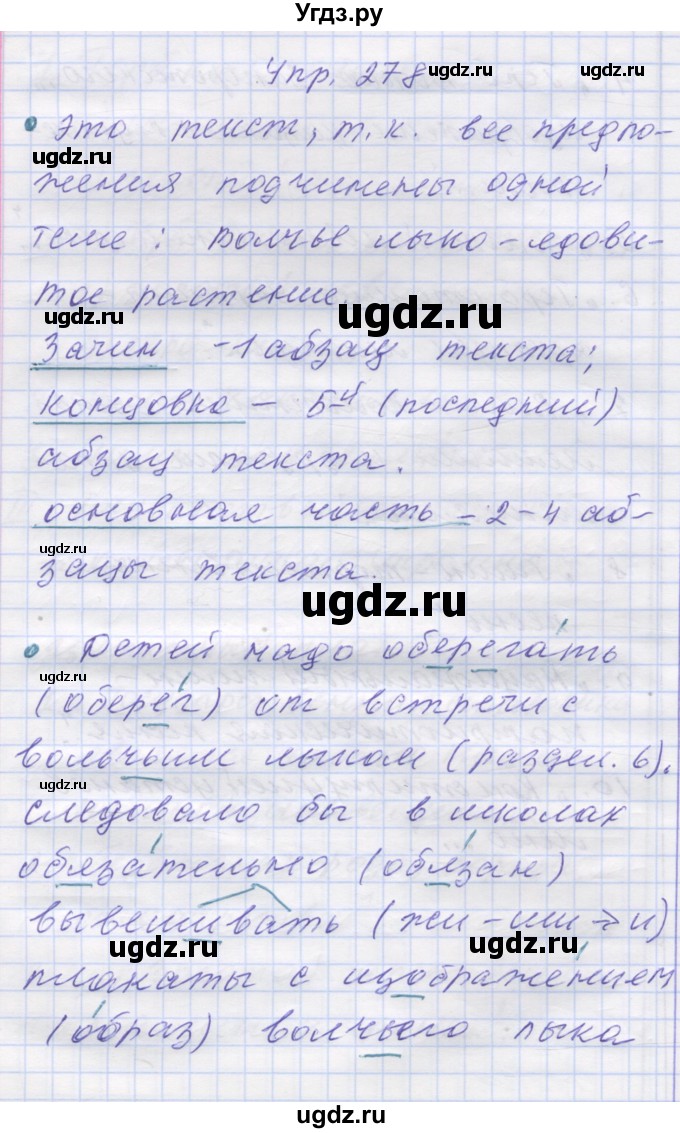 Угдз.ру
Упр. 278
ugdz.ru
ugdz.ru
Это текст, т.к. все предло-
ugdz.ru
жения подчинены одной
теме: Волчье лыко – ядови-
тое растение.
ugdz.ru
ugdz.ru
Зачин – 1 абзац текста;
концовка – 5й (последний)
абзац текста.
основная часть – 2-4 аб-
ugdz.ru
зацы текста.
ugdz.ru
Детей надо оберегать
ugdz.ru
(оберег) от встречи с
вольчьим лыком (раздел. ь).
ugdz.ru
следовало бы в школах
обязательно (обязан)
вывешивать (жи-ши → и)
ugdz.ru
ugdz.ru
плакаты с изображением
(образ) волчьего лыка
ugdz.ru
ugdz.ru